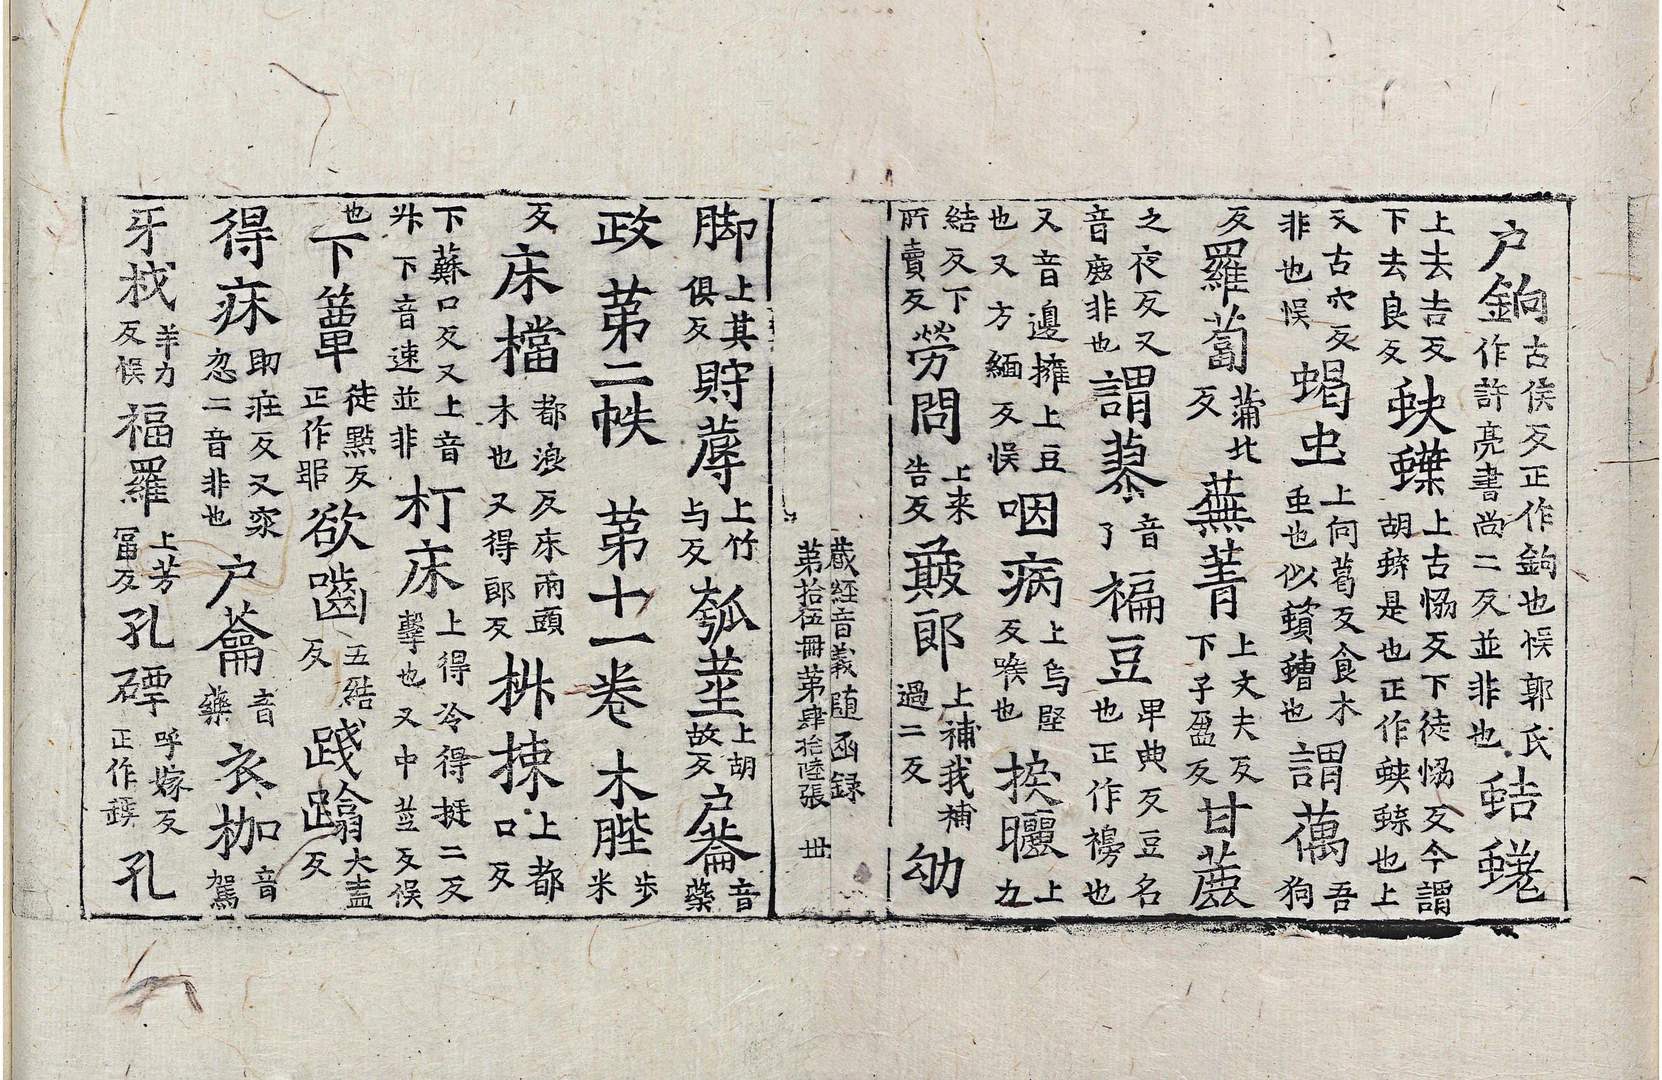 户鉤古侯反正作鉤也悮郭氏作許亮書尚二反並非也蛣蜣
上去吉反下去良反蚗蠂上古惱反下徒惱反今謂胡蝶是也正作蛺蝶也上
又古穴反非也悮蝎虫上何葛反食木虫也似蠀螬也謂蕅吾狗
反羅蔔蒲北反蕪菁上文夫反下子盈反甘蔗
之夜反又音庶非也謂藜音了褊豆卑典反豆名也正作𥡤也
又音邊擁上豆也又方緬反悮咽病上烏堅反喉也捩曬上力
結反下所賣反勞問上来告反簸郎上補我補過二反幼
藏經音義随函録
第拾伍冊第肆拾陸張 丗
脚上其俱反貯蓐上竹与反瓠䒳上胡故反户蘥音藥
政 第二帙 第十一卷 木䏶步米
反床檔都浪反床兩頭木也又得郎反枓揀上都口反
下蘇口反又上音汼下音速並非朾床上得冷得挺二反擊也又中莖反悮
也下簟徒㸃反正作𥴦欲嚙五結反踐蹹大盍反
得床助庄反又寐忽二音非也户蘥音藥衣枷音駕
牙杙羊力反悮福羅上芳冨反孔𥓂呼嫁反正作罅孔